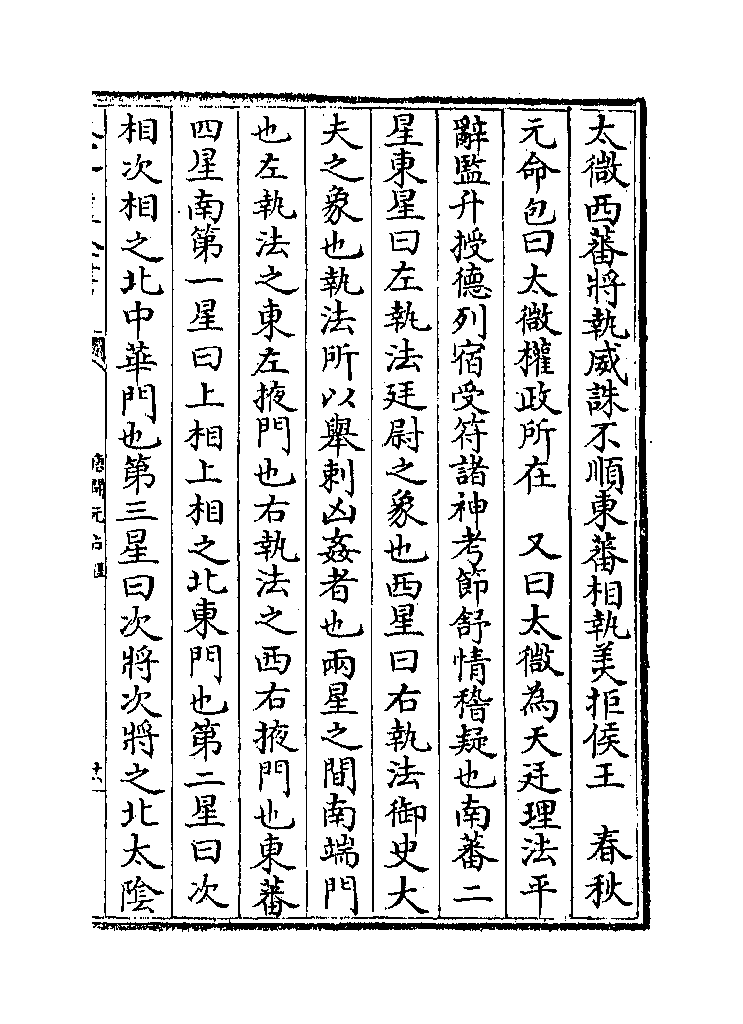 太微西蕃將執威誅不順東蕃相執美拒侯王　春秋
元命包曰太微權政所在　又曰太微為天廷理法平
辭監升授德列宿受符諸神考節舒情稽疑也南蕃二
星東星曰左執法廷尉之象也西星曰右執法御史大
夫之象也執法所以舉刺凶姦者也兩星之間南端門
也左執法之東左掖門也右執法之西右掖門也東蕃
四星南第一星曰上相上相之北東門也第二星曰次
相次相之北中華門也第三星曰次將次將之北太陰
唐開元占經